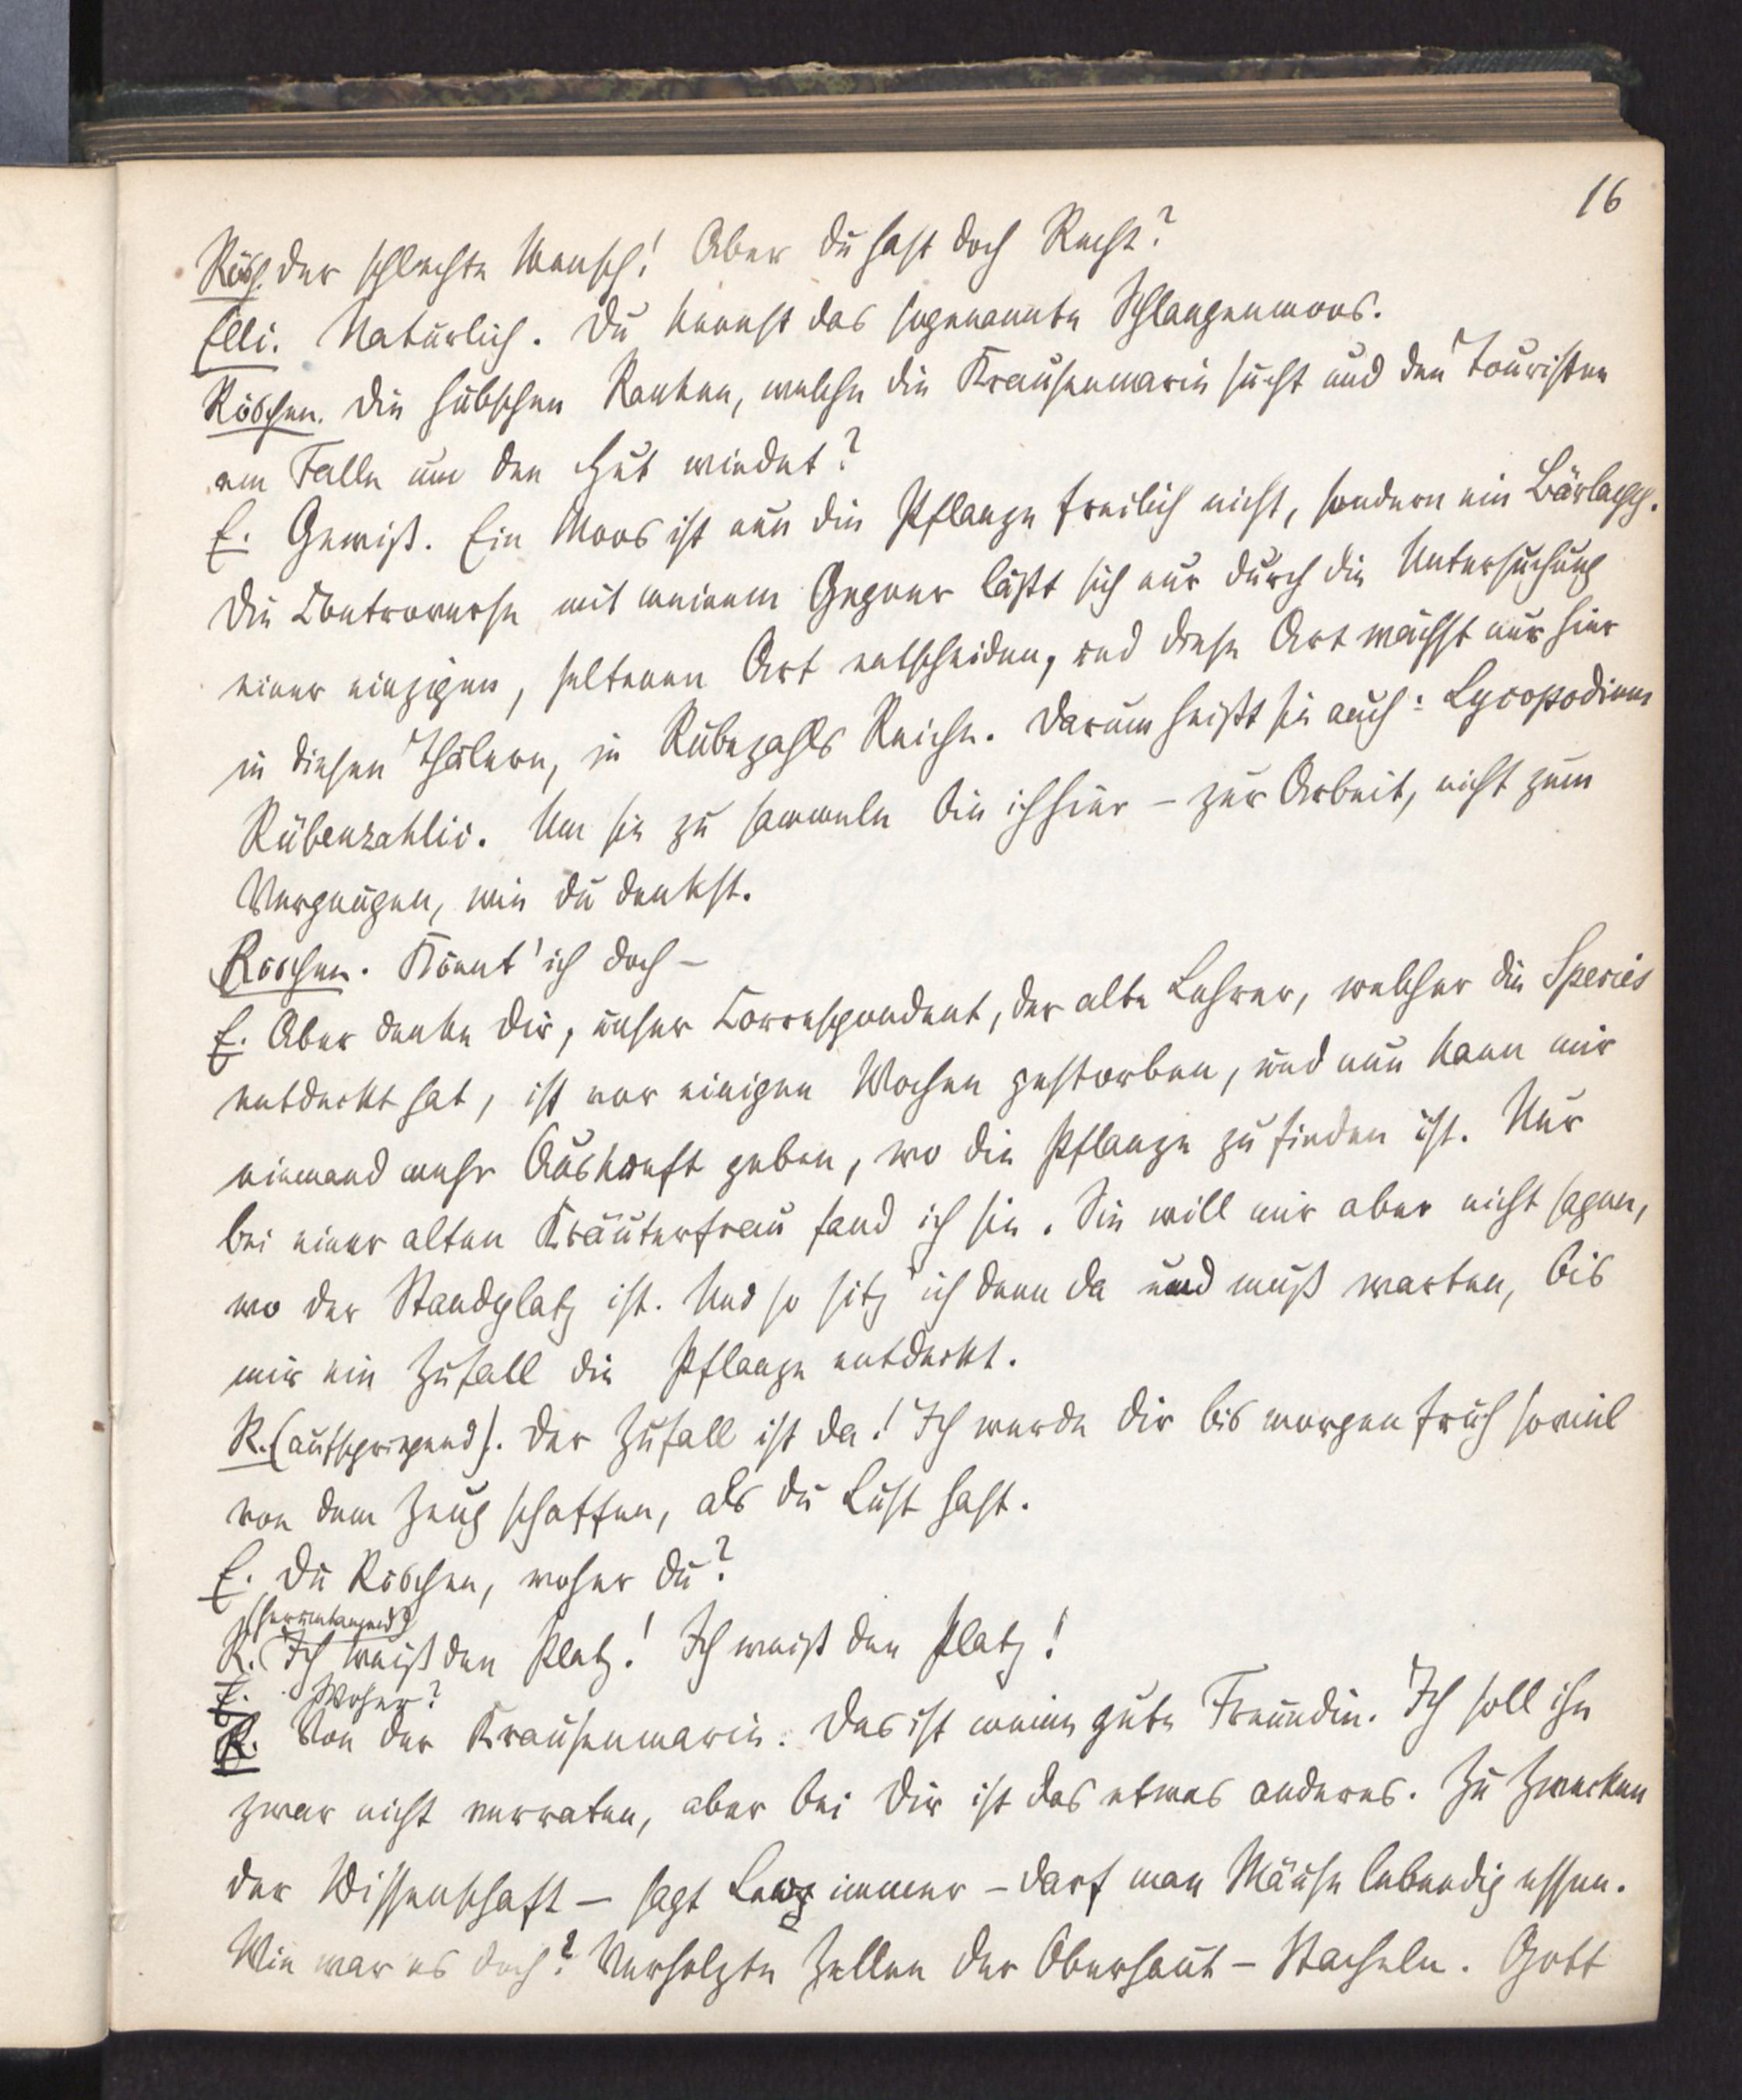 16
Rösch. Der schlechte Mensch! Aber du hast doch Recht?
Elli. Natürlich. Du kennst das sogenannte Schlangenmoos.
Röschen. Die hübschen Ranken, welche die Krausemarie sucht und den Touristen
am Falle um den Hut windet?
E. Gewiß. Ein Moos ist nun die Pflanze freilich nicht, sondern ein Bärlapp.
Die Controverse mit meinem Gegner läßt sich nur durch die Untersuchung
einer einzigen, seltenen Art entscheiden, und diese Art wächst nur hier
in diesen Thälern, in Rübezahls Reiche. Darum heißt sie auch: Lycopodium
Rübenzahlii. Um sie zu sammeln bin ich hier – zur Arbeit, nicht zum
Vergnügen, wie du denkst.
Röschen. Könnt' ich doch –
E. Aber denke dir, unser Correspondent, der alte Lehrer, welcher die Species
entdeckt hat, ist vor einigen Wochen gestorben, und nun kann mir
niemand mehr Auskunft geben, wo die Pflanze zu finden ist. Nur
bei einer alten Kräuterfrau fand ich sie. Sie will mir aber nicht sagen,
wo der Standplatz ist. Und so sitz' ich denn da und muß warten, bis
mir ein Zufall die Pflanze entdeckt.
R. (aufspringend). Der Zufall ist da! Ich werde dir bis morgen früh soviel
von dem Zeug schaffen, als du Lust hast.
E. Du Röschen, woher du?
(herumtanzend)
R. Ich weiß den Platz! Ich weiß den Platz!
E. Woher?
R. Von der Krausenmarie. Das ist meine gute Freundin. Ich soll ihn
zwar nicht verraten, aber bei dir ist das etwas anderes. Zu Zwecken
der Wissenschaft – sagt Lenz immer – darf man Mäuse lebendig essen.
Wie war es doch? Verholzte Zellen der Oberhaut – Stacheln. Gott